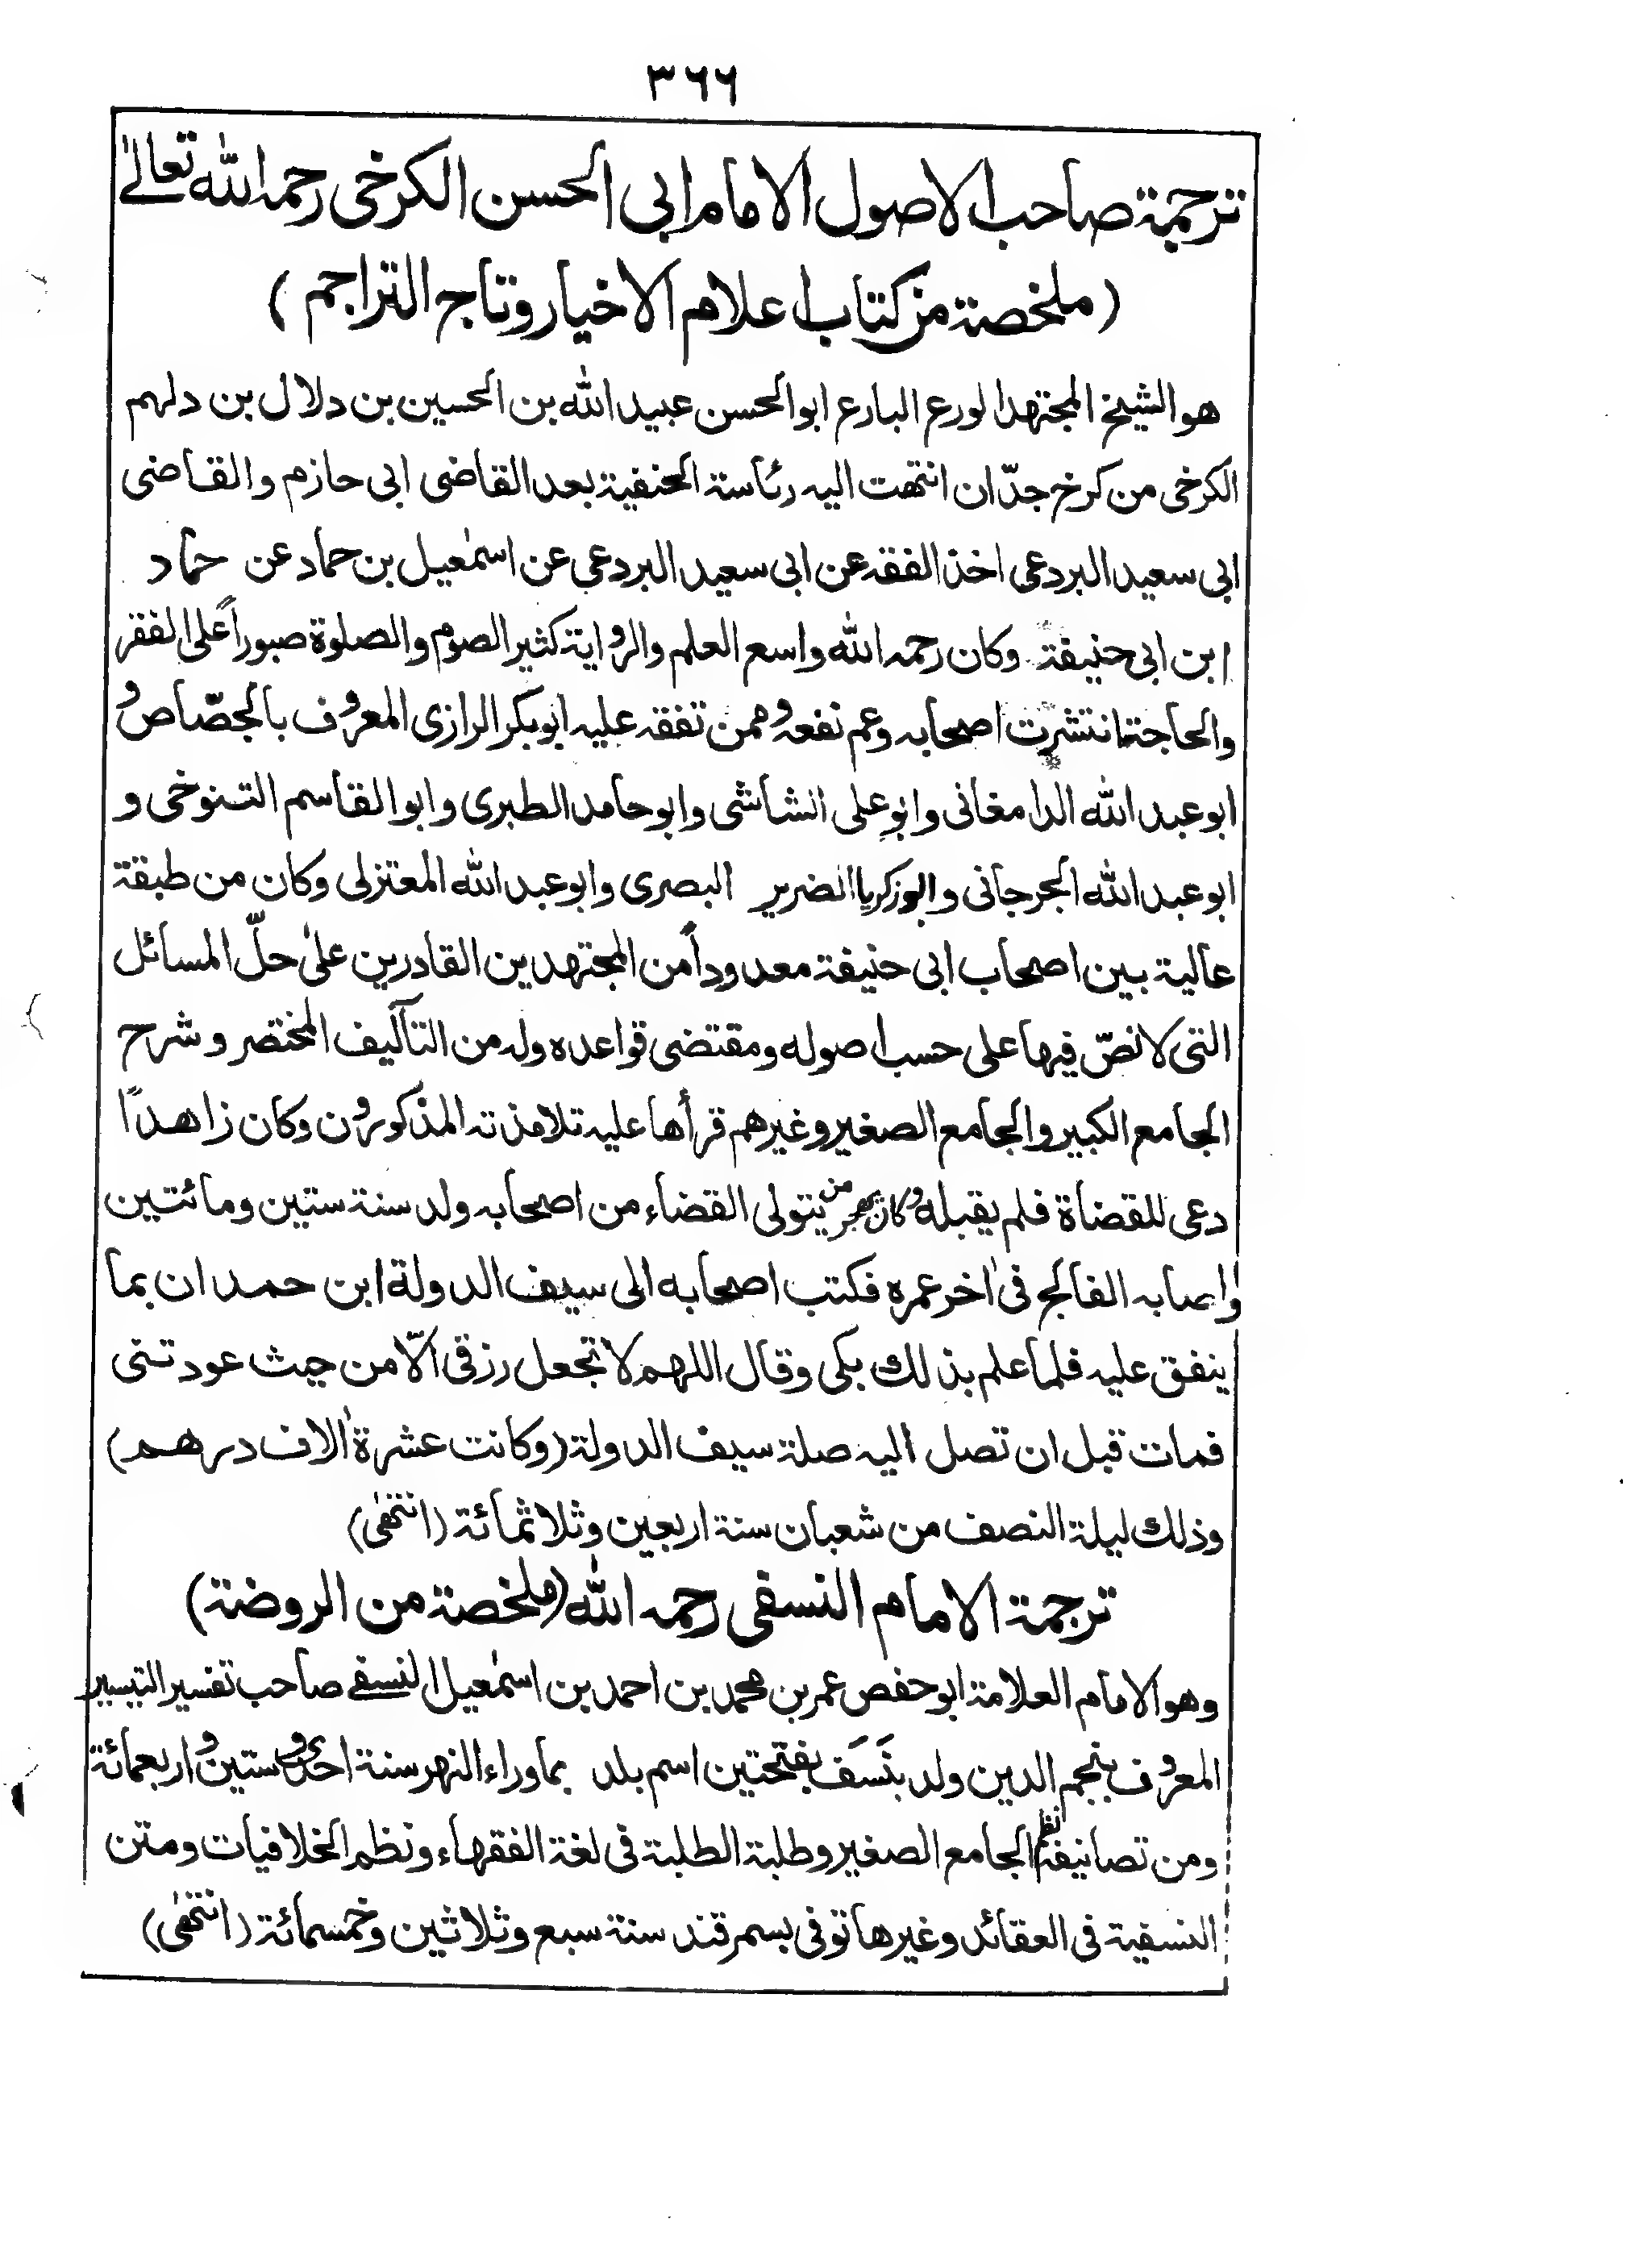 ٣٦٦
ترجمة صاحب الاصول الامام ابى الحسن الكرخى رحمه الله تعالىٰ
(ملخصة من كتاب اعلام الاخيار وتاج التراجم)
هو الشيخ المجتهد الورع البارع ابو الحسن عبيد الله بن الحسين بن دلال بن دلهم
الكرخى من كرخ جدّان انتهت اليه رئاسة الحنفية بعد القاضى ابى حازم والقاضى
ابى سعيد البردعى اخذ الفقه عن ابى سعيد البردعى عن اسمٰعيل بن حماد عن حماد
ابن ابى حنيفة وكان رحمه الله واسع العلم والرواية كثير الصوم والصلوة صبوراً على الفقر
والحاجة انتشرت اصحابه وعم نفعه وممن تفقه عليه ابو بكر الرازى المعروف بالجصّاص و
ابو عبد الله الدامغانى وابو على الشاشى وابو حامد الطبرى وابو القاسم التنوخى و
ابو عبد الله الجرجانى وابو زكريا الضرير البصرى وابو عبد الله المعتزلى وكان من طبقة
عالية بين اصحاب ابى حنيفة معدوداً من المجتهدين القادرين علىٰ حلّ المسائل
التى لا نصّ فيها على حسب اصوله ومقتضى قواعده وله من التآليف المختصر وشرح
الجامع الكبير والجامع الصغير وغيرهم قرأها عليه تلامذته المذكورون وكان زاهداً
دعى للقضاة فلم يقبله وكان يهجر من يتولى القضاء من اصحابه ولد سنة ستين ومائتين
واصابه الفالج فى اٰخر عمره فكتب اصحابه الى سيف الدولة ابن حمدان بما
ينفق عليه فلما علم بذلك بكى وقال اللهم لا تجعل رزقى الّا من حيث عودتنى
فمات قبل ان تصل اليه صلة سيف الدولة (وكانت عشرة اٰلاف درهم)
وذلك ليلة النصف من شعبان سنة اربعين وثلاثمائة (انتهىٰ)
ترجمة الامام النسفى رحمه الله (ملخصة من الروضة)
وهو الامام العلامة ابو حفص عمر بن محمد بن احمد بن اسمٰعيل النسفے صاحب تفسير التيسير
المعروف بنجم الدين ولد بنَسَف بفتحتين اسم بلد بماوراء النهر سنة احدى وستين واربعمائة
ومن تصانيفه نظم الجامع الصغير وطلبة الطلبة فى لغة الفقهاء ونظم الخلافيات ومتن
النسفية فى العقائد وغيرها توفى بسمرقند سنة سبع وثلاثين وخمسمائة (انتهىٰ)